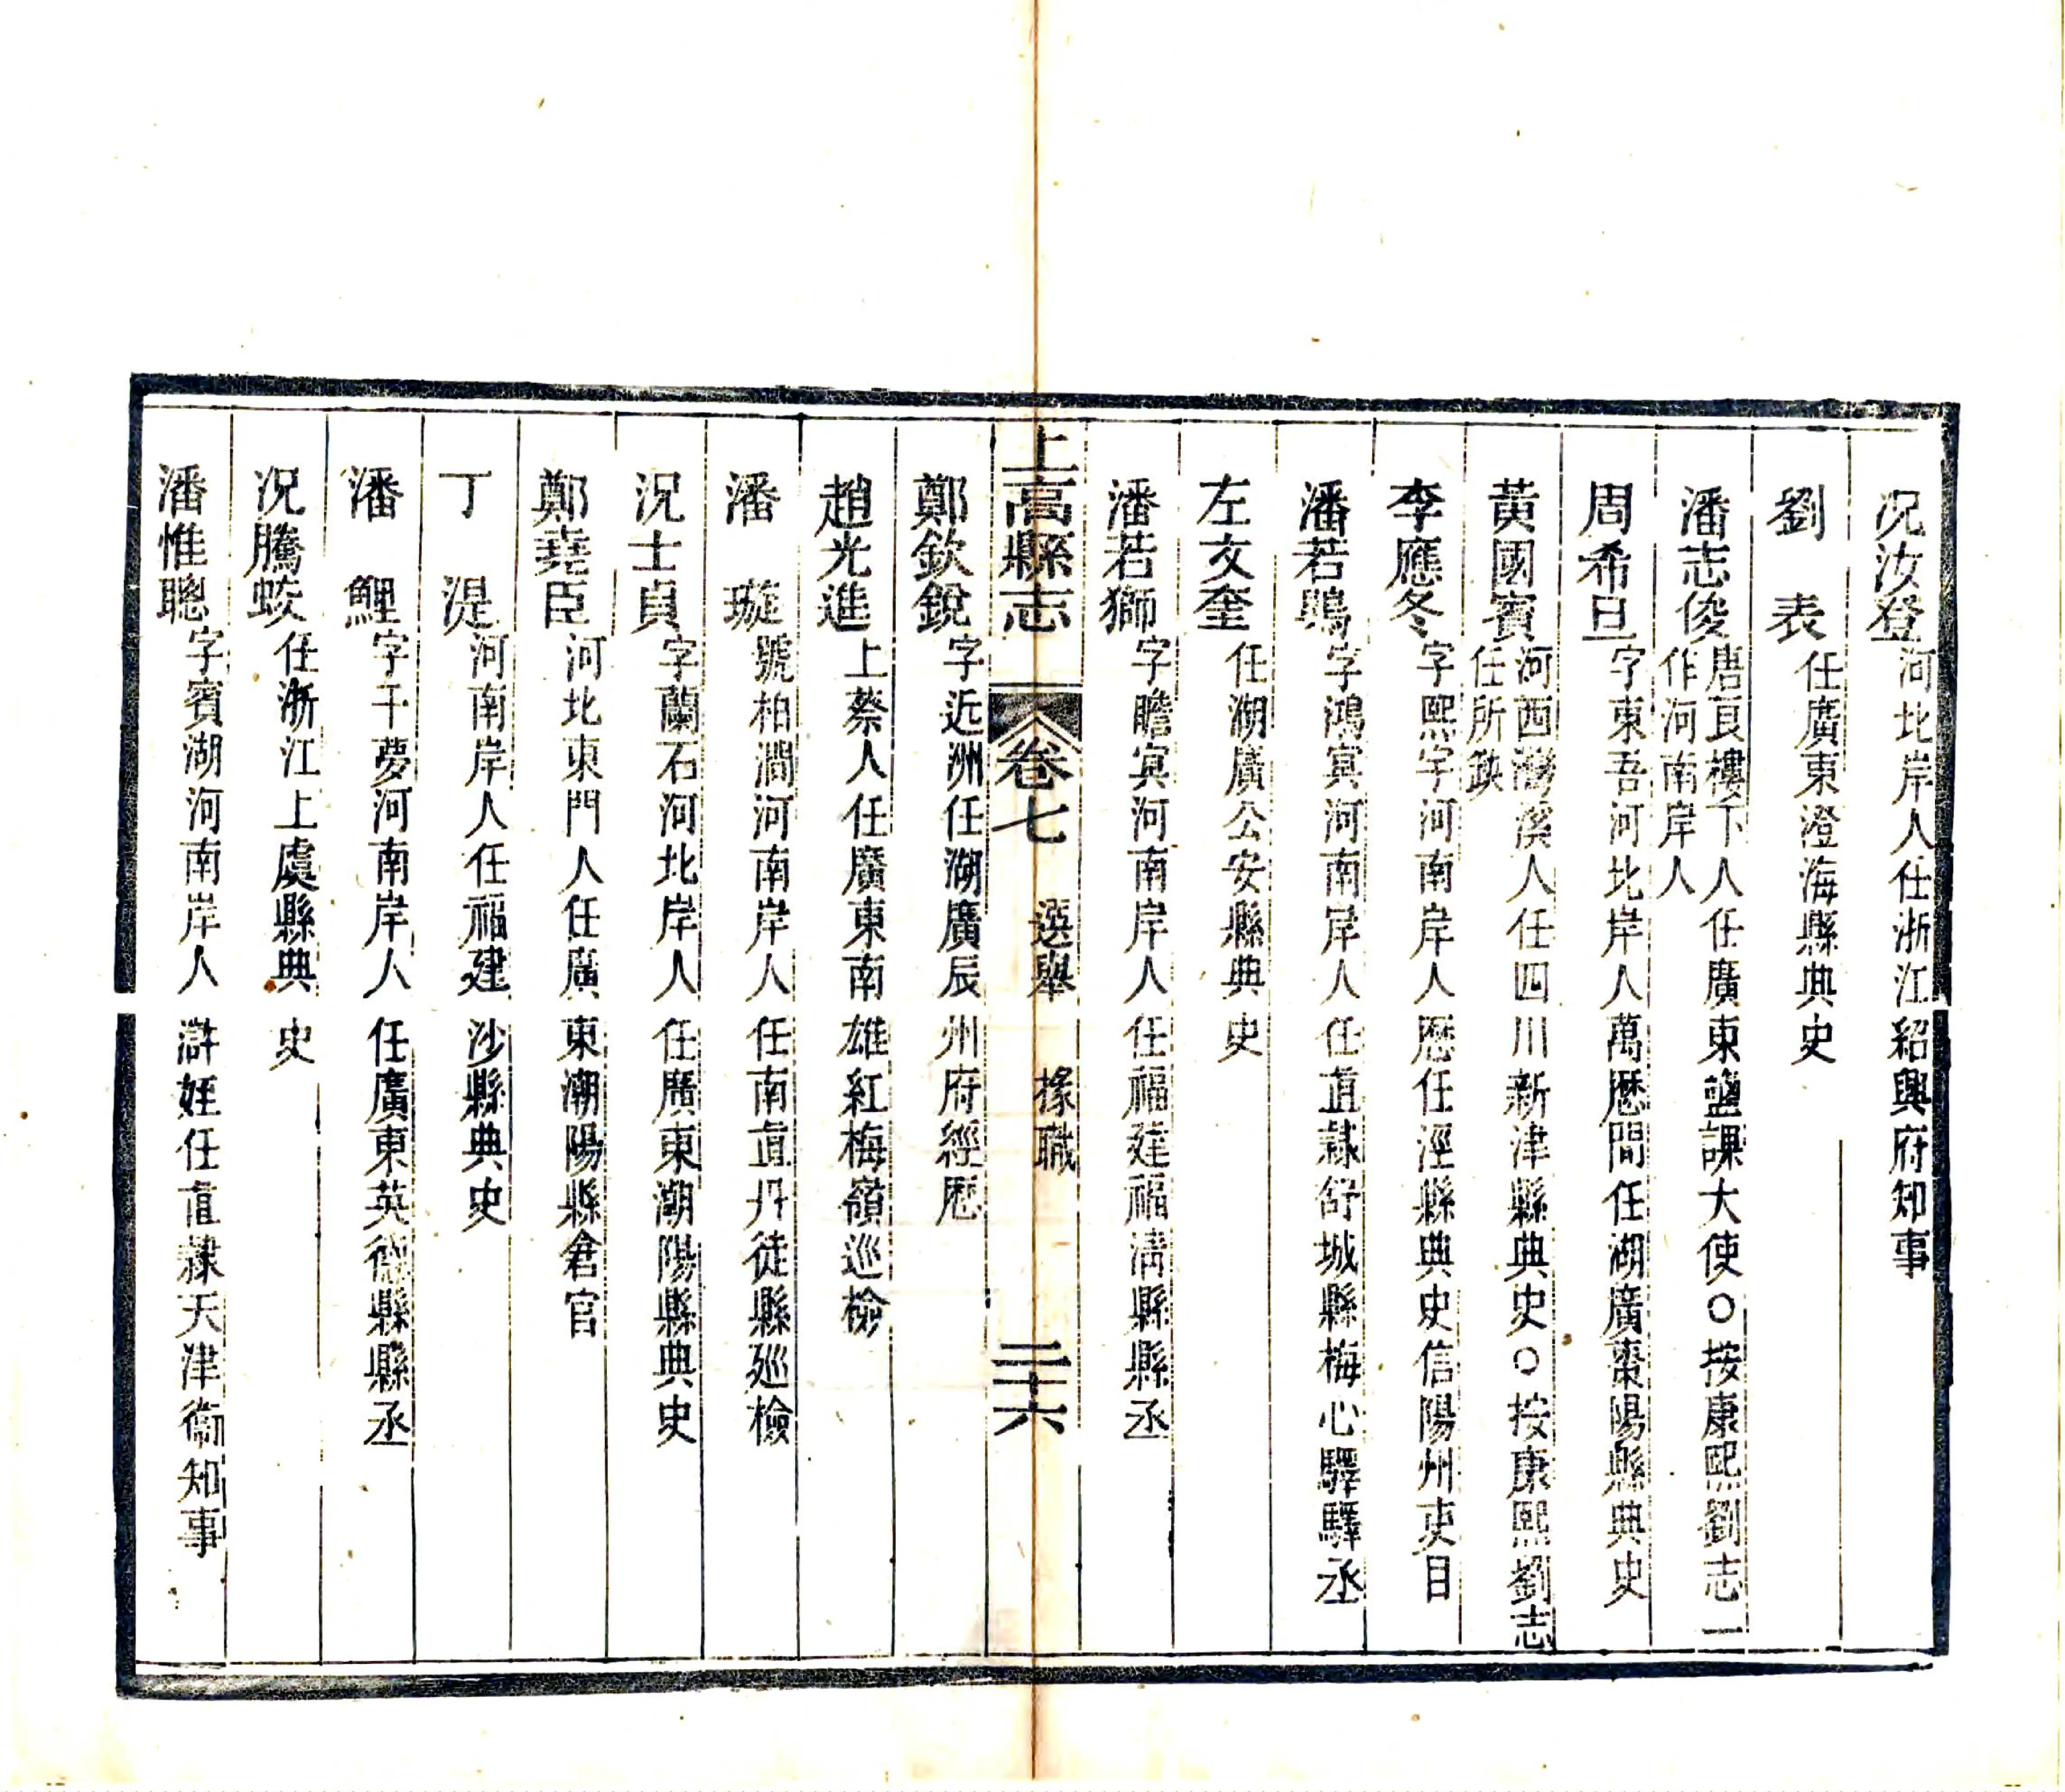 况汝登河北岸人任浙江紹興府知事
劉表任廣東澄海縣典史
潘志俊唐良樓下人任廣東鹽課大使○按康熙劉志一
作河南岸人
周希旦字東吾河北岸人萬歷間任湖廣棗陽縣典史
黃國賓河西灣溪人任四川新津縣典史○按康熙劉志
任所缺
李應冬字熙宇河南岸人歷任涇縣典史信陽州吏目
潘若鵾字鴻寞河南岸人任直隸舒城縣梅心驛驛丞
左文奎任湖廣公安縣典史
潘若獅字瞻寞河南岸人任福建福清縣縣丞
上高縣志 卷七 選舉 掾職 二十六
鄭欽銳字近洲任湖廣辰州府經歷
趙光進上蔡人任廣東南雄紅梅嶺巡檢
潘璇號柏澗河南岸人任南直丹徒縣廵檢
況士貞字蘭石河北岸人任廣東潮陽縣典史
鄭堯臣河北東門人任廣東潮陽縣倉官
丁湜河南岸人任福建沙縣典史
潘鯉字千夢河南岸人任廣東英德縣縣丞
况騰蛟任浙江上虞縣典史
潘惟聰字賓湖河南岸人滸姪任直隸天津衞知事